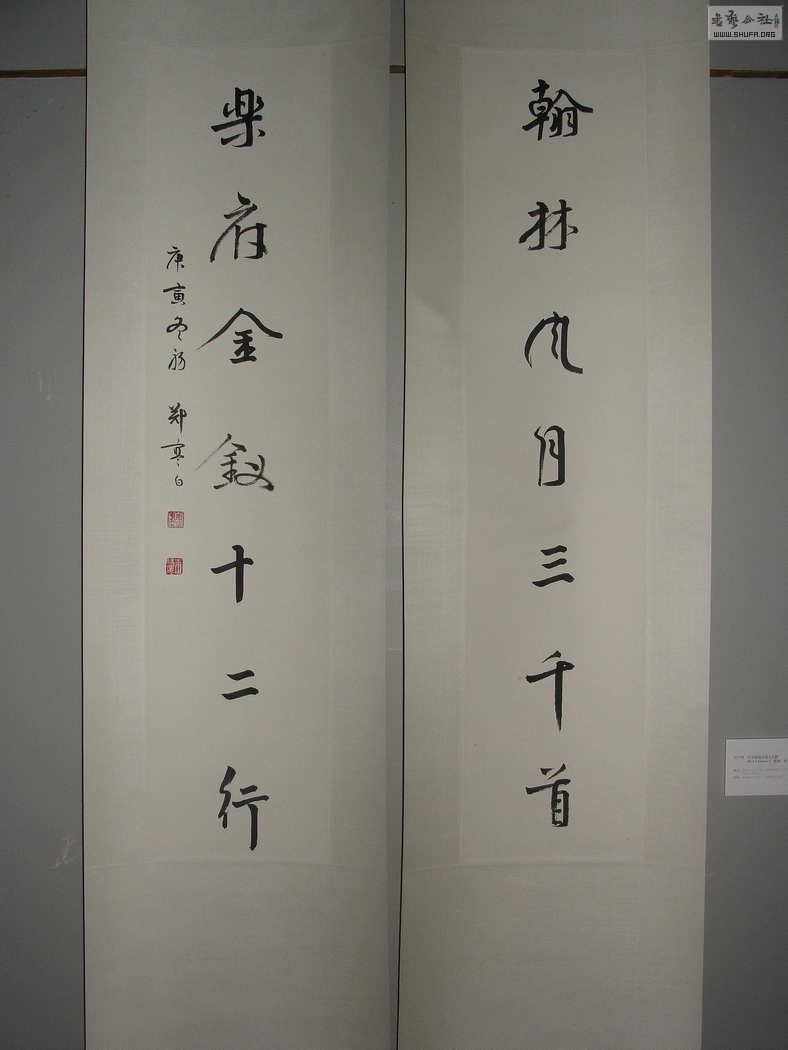 翰林风月三千首
樂府金釵十二行
庚寅冬初 郑寒白
书艺公社
WWW.SHUFA.ORG